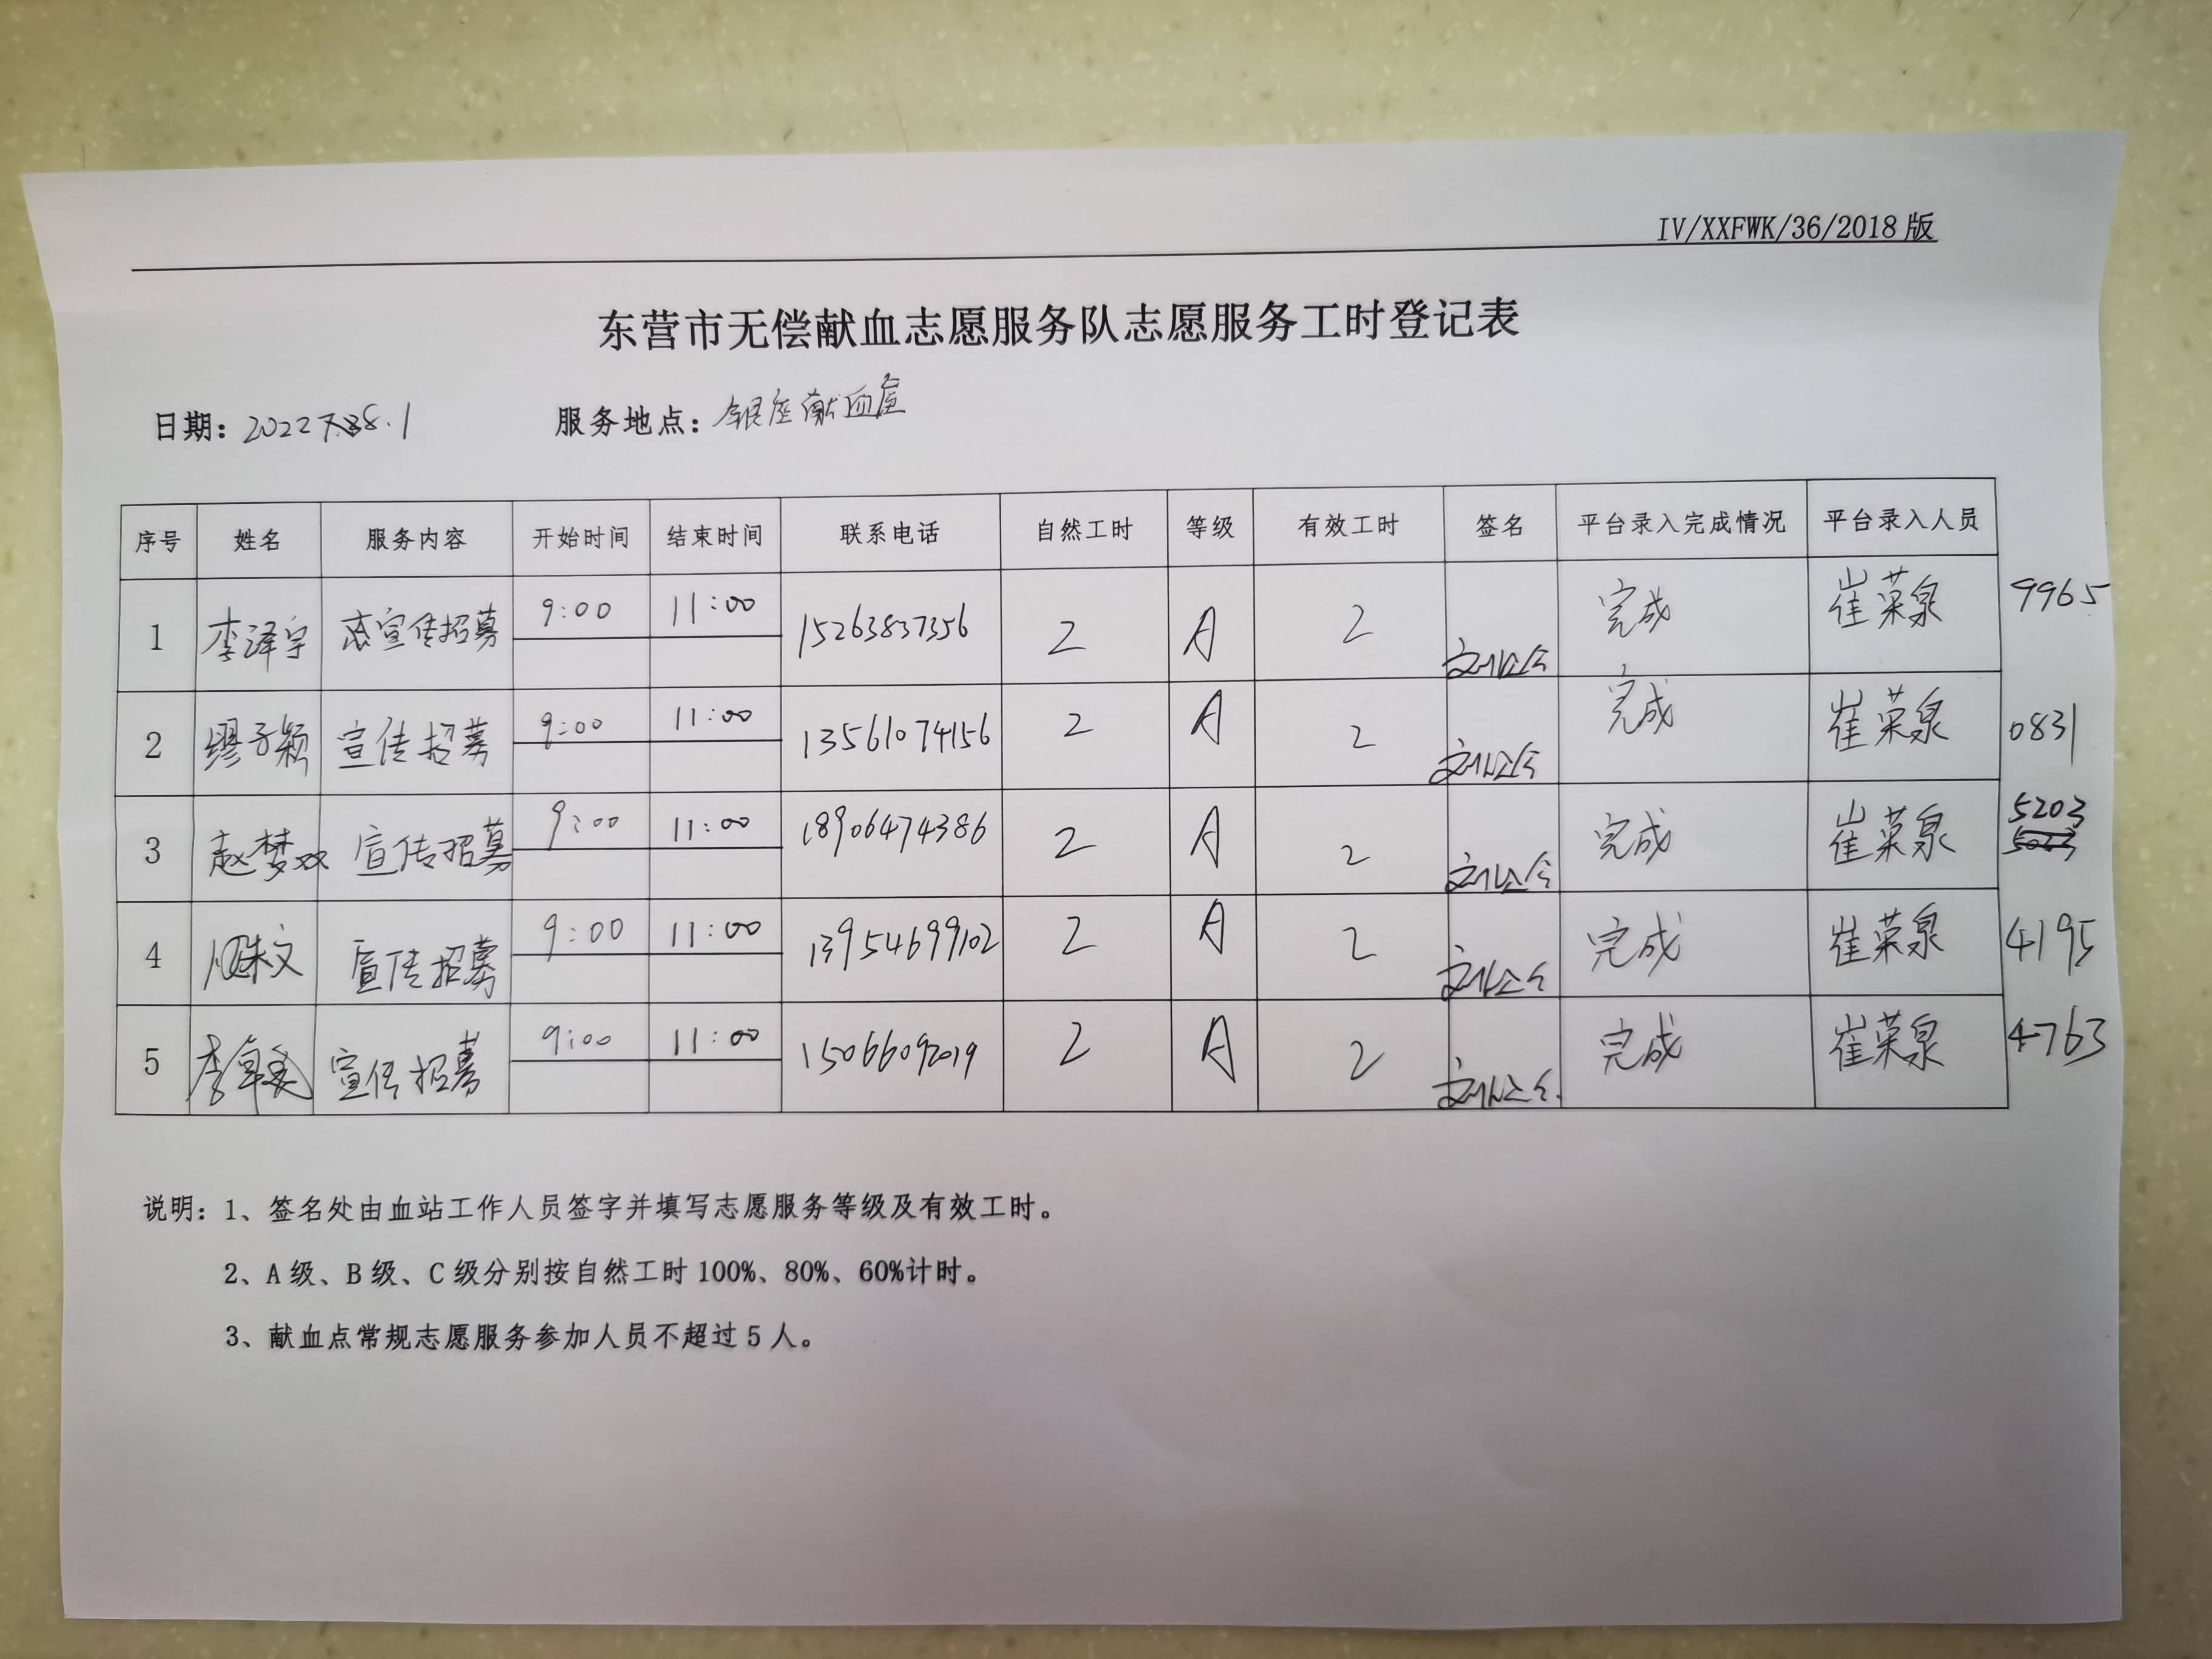 IV/XXFWK/36/2018版
东营市无偿献血志愿服务队志愿服务工时登记表
日期：2022 8.1 服务地点：银座献血屋
序号 姓名 服务内容 开始时间 结束时间 联系电话 自然工时 等级 有效工时 签名 平台录入完成情况 平台录入人员
1 李泽宇 宣传招募 9:00 11:00 15263837356 2 A 2 完成 崔荣泉 9965
2 缪子颖 宣传招募 9:00 11:00 13561074156 2 A 2 完成 崔荣泉 0831
3 赵梦双 宣传招募 9:00 11:00 18906474386 2 A 2 完成 崔荣泉 5203
4 宣传招募 9:00 11:00 13954699102 2 A 2 完成 崔荣泉 4195
5 宣传招募 9:00 11:00 15066092019 2 A 2 完成 崔荣泉 4763
说明：1、签名处由血站工作人员签字并填写志愿服务等级及有效工时。
2、A级、B级、C级分别按自然工时100%、80%、60%计时。
3、献血点常规志愿服务参加人员不超过5人。